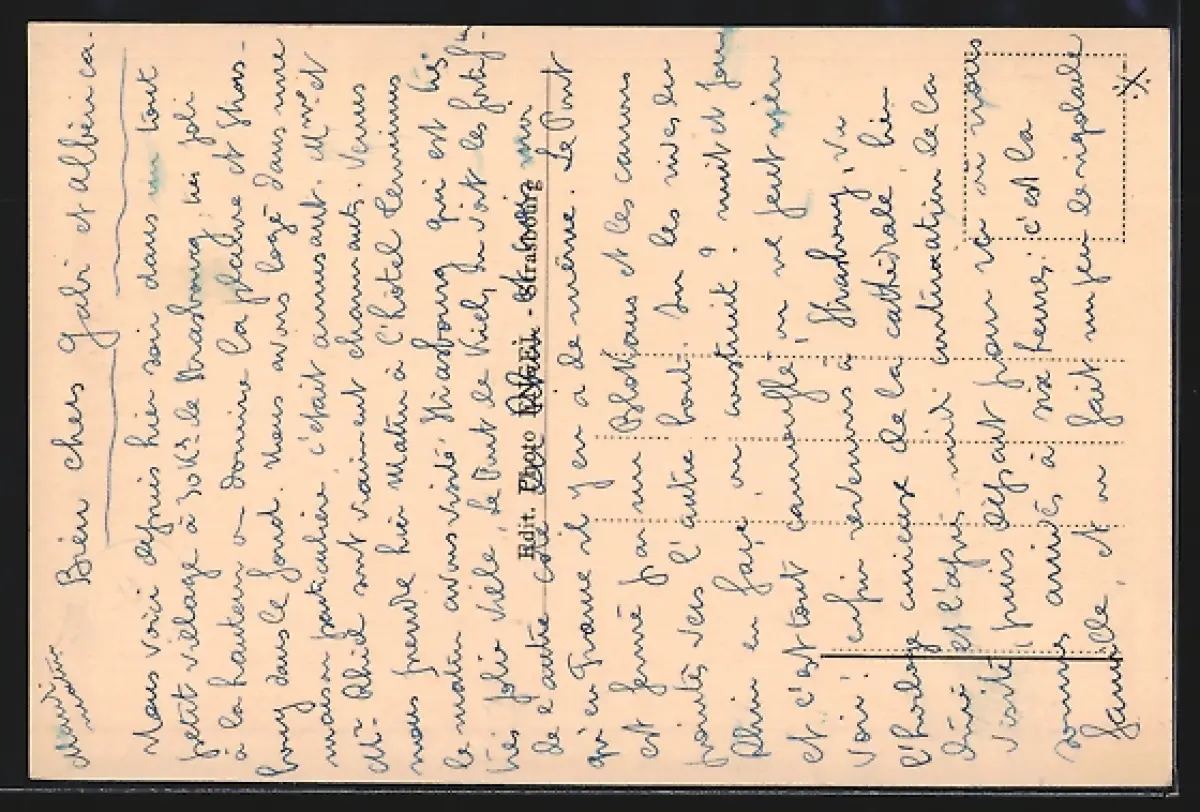 Mardi
matin
Bien chers Gabi et Albérica.
Nous voici depuis hier soir dans un tout
petit village à 30 Ks de Strasbourg, très joli
à la hauteur on domine la plaine et Stras-
bourg dans le fond. Nous avons logé dans une
maison particulière c'était amusant. Mme et
Mr sont vraiment charmants. Venus
nous prendre hier Matin à l'hôtel Terminus
le matin avons visité Strasbourg qui est très
très jolie ville, le Pont de Kiel, on voit les fortifi-
de l'autre côté
Edit. Photo ENGEL - Strasbourg
qu'en France il y en a de même. Le Pont
est fermé par un Blockaus et les canons
pointés vers l'autre bout. Sur les rives du
Rhin en face, on construit nuit et jour
et c'est tout camouflé, on ne peut guère
voir. enfin revenus à Strasbourg, vu
l'horloge curieuse de la cathédrale hier
et l'après-midi continuation de la
visite, puis départ pour ici où nous
sommes arrivés à six heures. c'est la
famille, et on fait un peu de rigolade